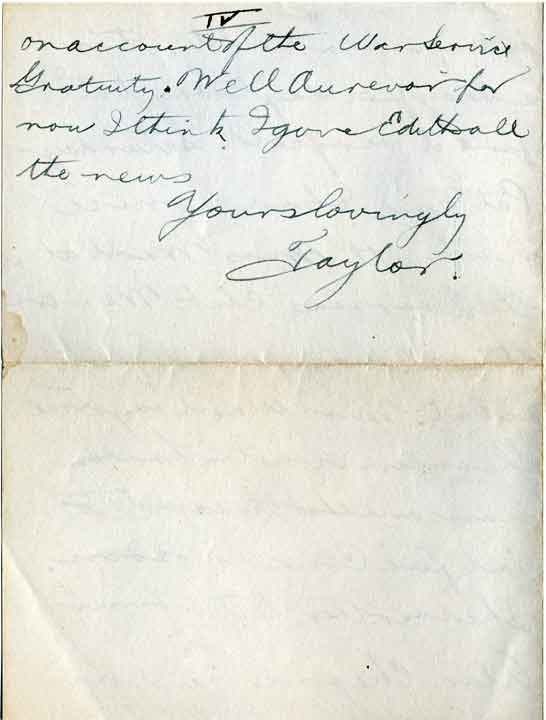 IV
on account of the War Service
Gratuity. Well Aurevoir for
now I think I gave Edith all
the news
Yours lovingly
Taylor.